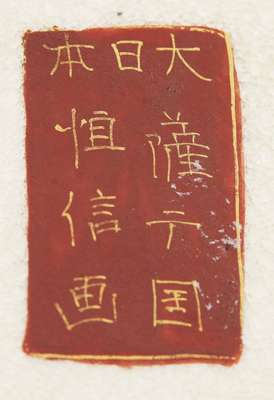 大日本
薩国
恒信画